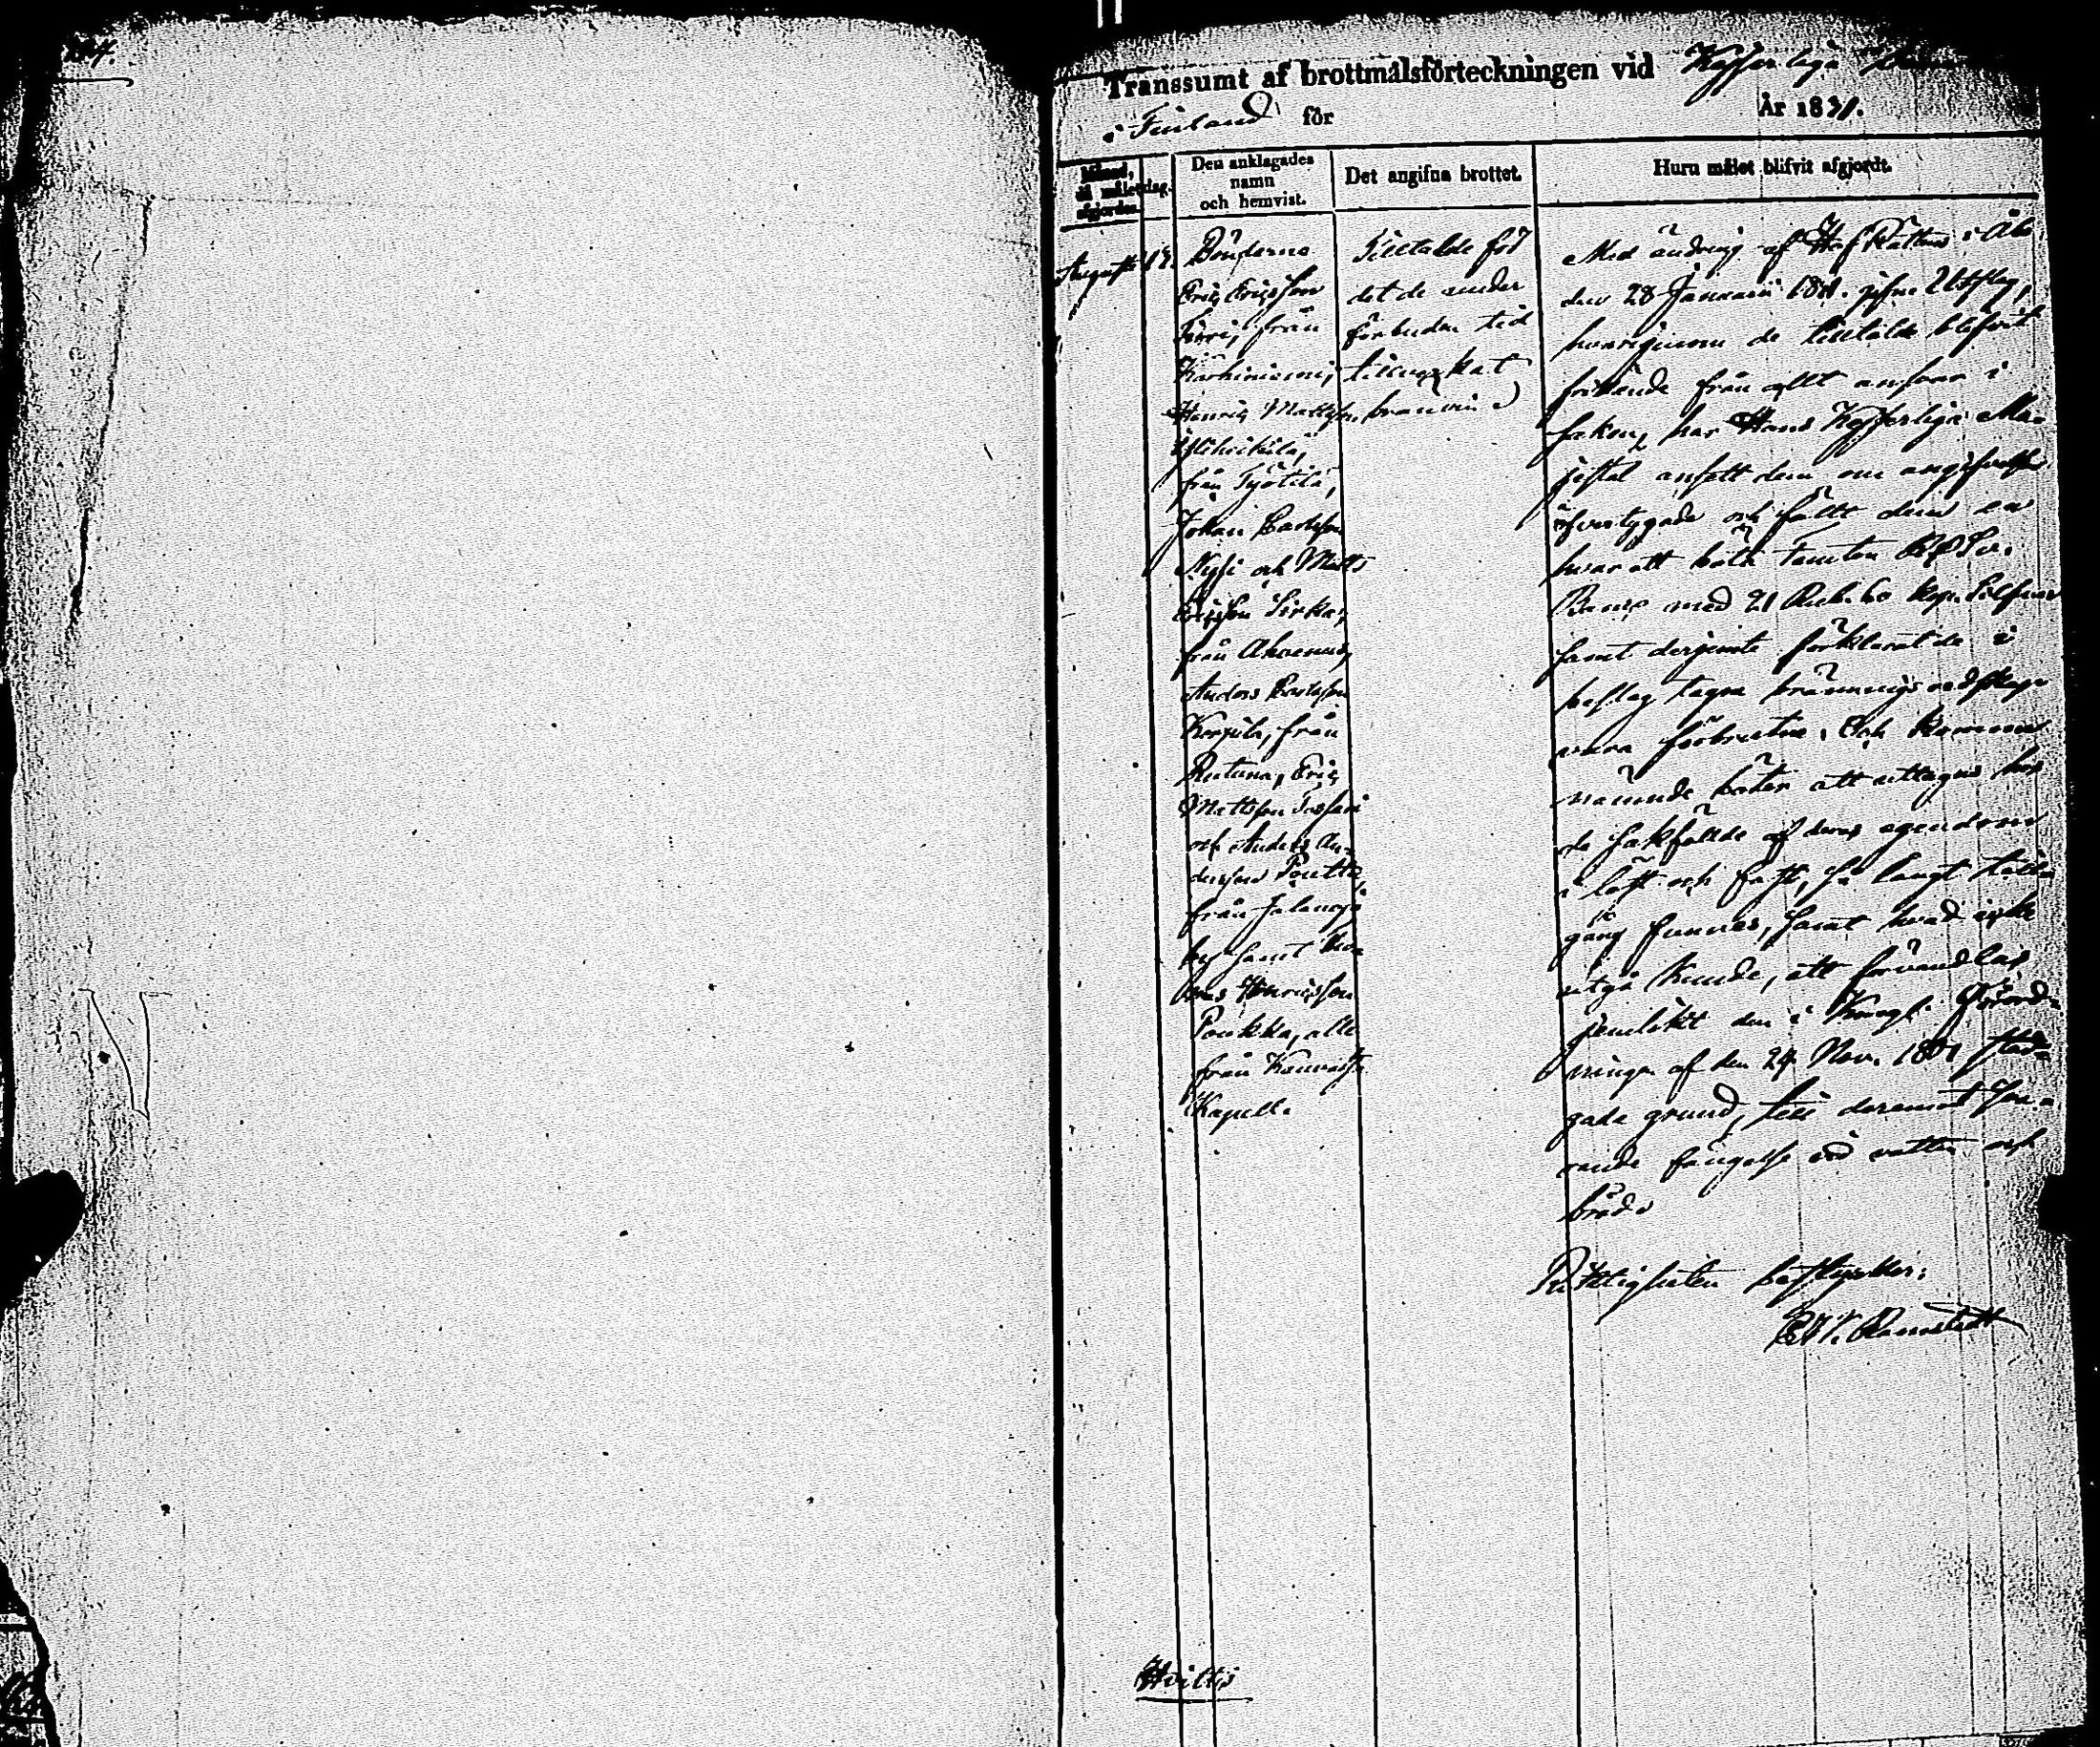 Transsumt af brottmålsförteckningen vid Kejserliga
i Finland för År 1831.
Månad, då målet afgjordes. dag.
Den anklagades namn och hemvist.
Det angifna brottet.
Huru målet blifvit afgjordt.
Augusti
Bönderne
Eric Ericsson
från
Henric Mattsson
från Työtilä,
Johan Carlsson
och Matts
Ericsson Sirka,
från Ahvenus,
Anders Carlsson
Korpula, från
Rutuna, Eric
Mattsson
och Anders An-
dersson Poutta
från Jalanoja
by samt Tho-
mas Henricsson
Poukka, alla
från
Kapell.
Tilltalde för
det de under
förbuden tid
tillverkat
bränvin
Med ändring af Hof Rättens i Åbo
den 28 Januarii 1831. gifne Utslag,
hvarigenom de tilltalde blifvit
frikände från allt ansvar i
saken, har Hans Kejserliga Ma-
jestät ansett dem om angifvelsen
öfvertygade och fällt dem en
hvar att böta Femton
Banco med 21 Rub. 60 Kop. Silfver
samt derjemte förklarat de i
beslag tagne bränningsredskap
vara förbrutne. Och komme
nämnde böter att uttagas hos
de sakfällde af deras egendom
i löst och fast, så långt till-
gång funnes, samt hvad icke
utgå kunde, att förvandlas
jemlikt den i Kongl. Förord-
ningen af den 24 Nov. 1801 stad-
gade grund, till deremot sva-
rande fängelse vid vatten och
bröd.
Riktigheten bestyrker:
Ramstedt
Hvittis